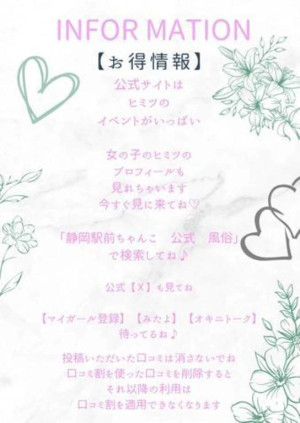 INFORMATION
【お得情報】
公式サイトは
ヒミツの
イベントがいっぱい
女の子のヒミツの
プロフィールも
見れちゃいます
今すぐ見に来てね♡
「静岡駅前ちゃんこ　公式　風俗」
で検索してね♪
公式【X】も見てね
【マイガール登録】【みたよ】【オキニトーク】
待ってるね♪
投稿いただいた口コミは消さないでね
口コミ割を使った口コミを削除すると
それ以降の利用は
口コミ割を適用できなくなります